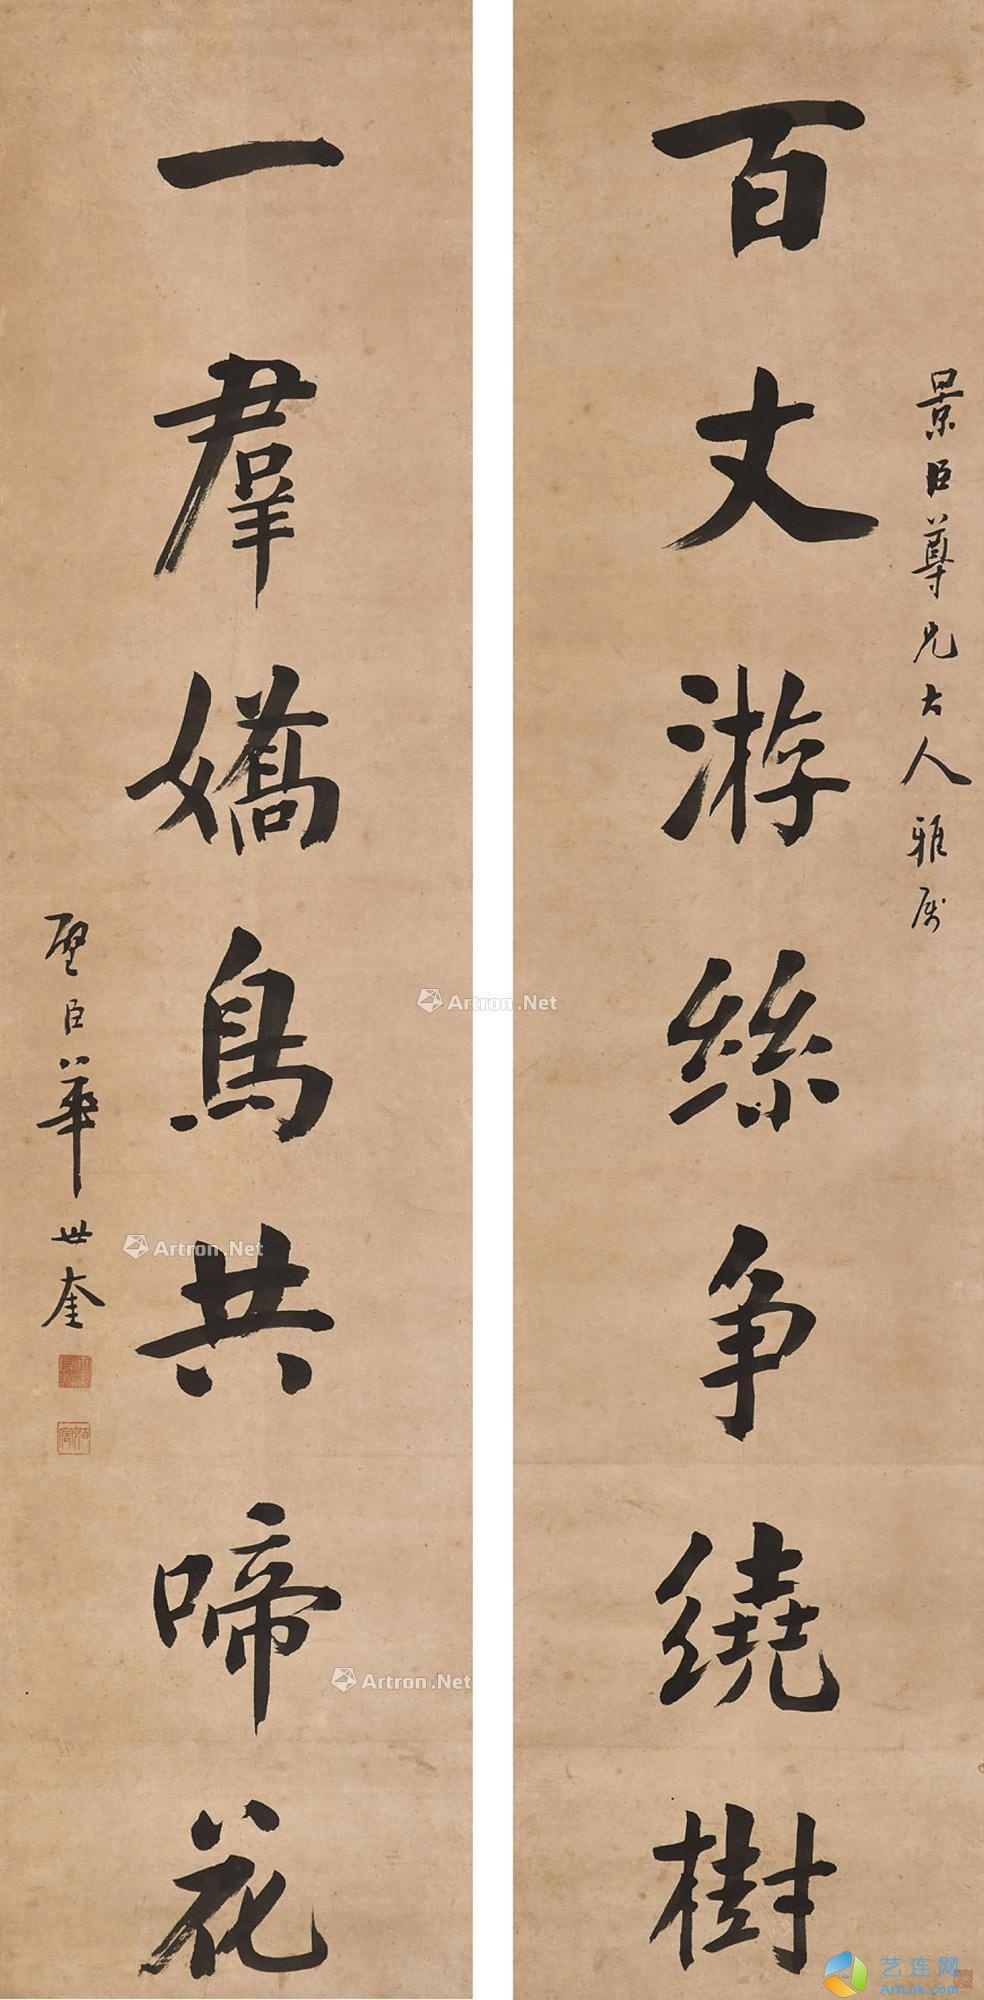 景臣尊兄大人雅属
百丈游絲争繞樹
一羣嬌鳥共啼花
壁臣華世奎
Artron.Net
Artron.Net
Artron.Net
艺连网
Arthk.com